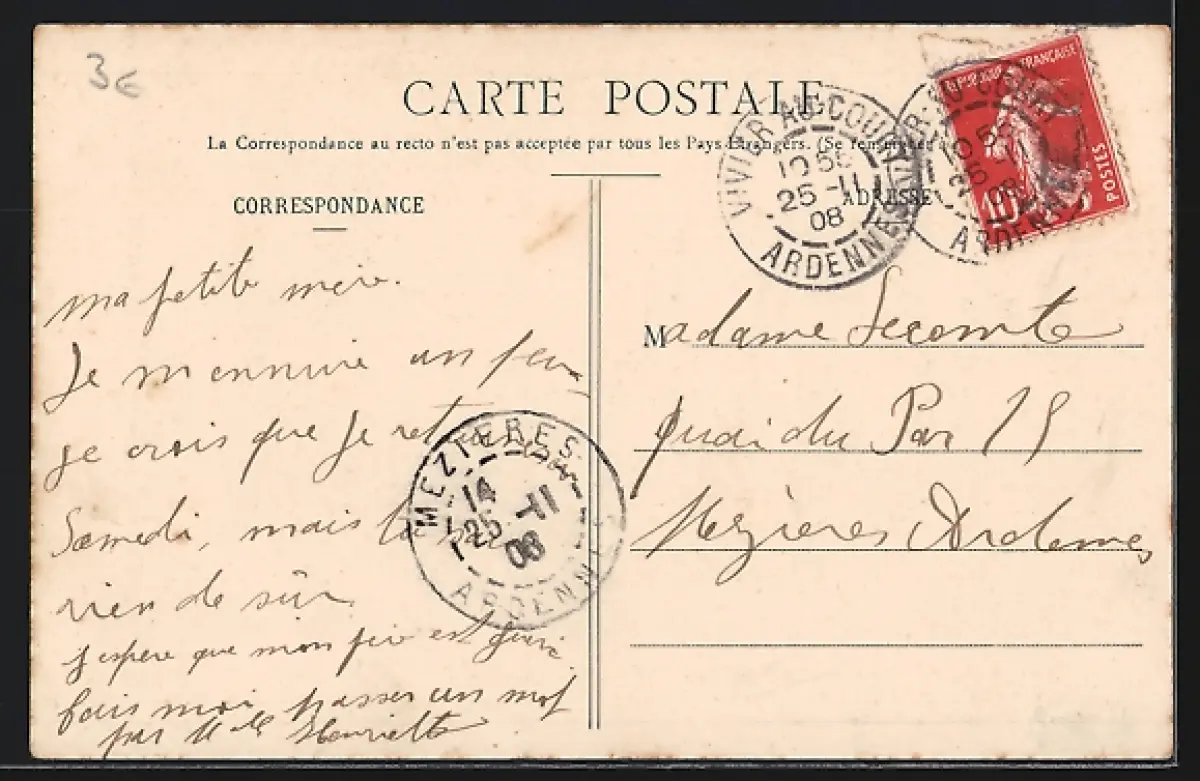 3€
CARTE POSTALE
La Correspondance au recto n'est pas acceptée par tous les Pays Étrangers. (Se renseigner
CORRESPONDANCE
ADRESSE
VIVIER-AU-COURT
10 55
25 -11
08
ARDENNES
10 55
25 -11
08
ARDENNES
RÉPUBLIQUE FRANÇAISE
10
POSTES
ma petite mère.
Je m'ennuie un peu
je crois que je
Samedi, mais
rien de sûr
j'espère que mon père est guéri
fais moi passer un mot
par Mlle Henriette
MEZIERES
14
25 -11
08
ARDENNES
Madame Lecomte
quai du
Mézières Ardennes